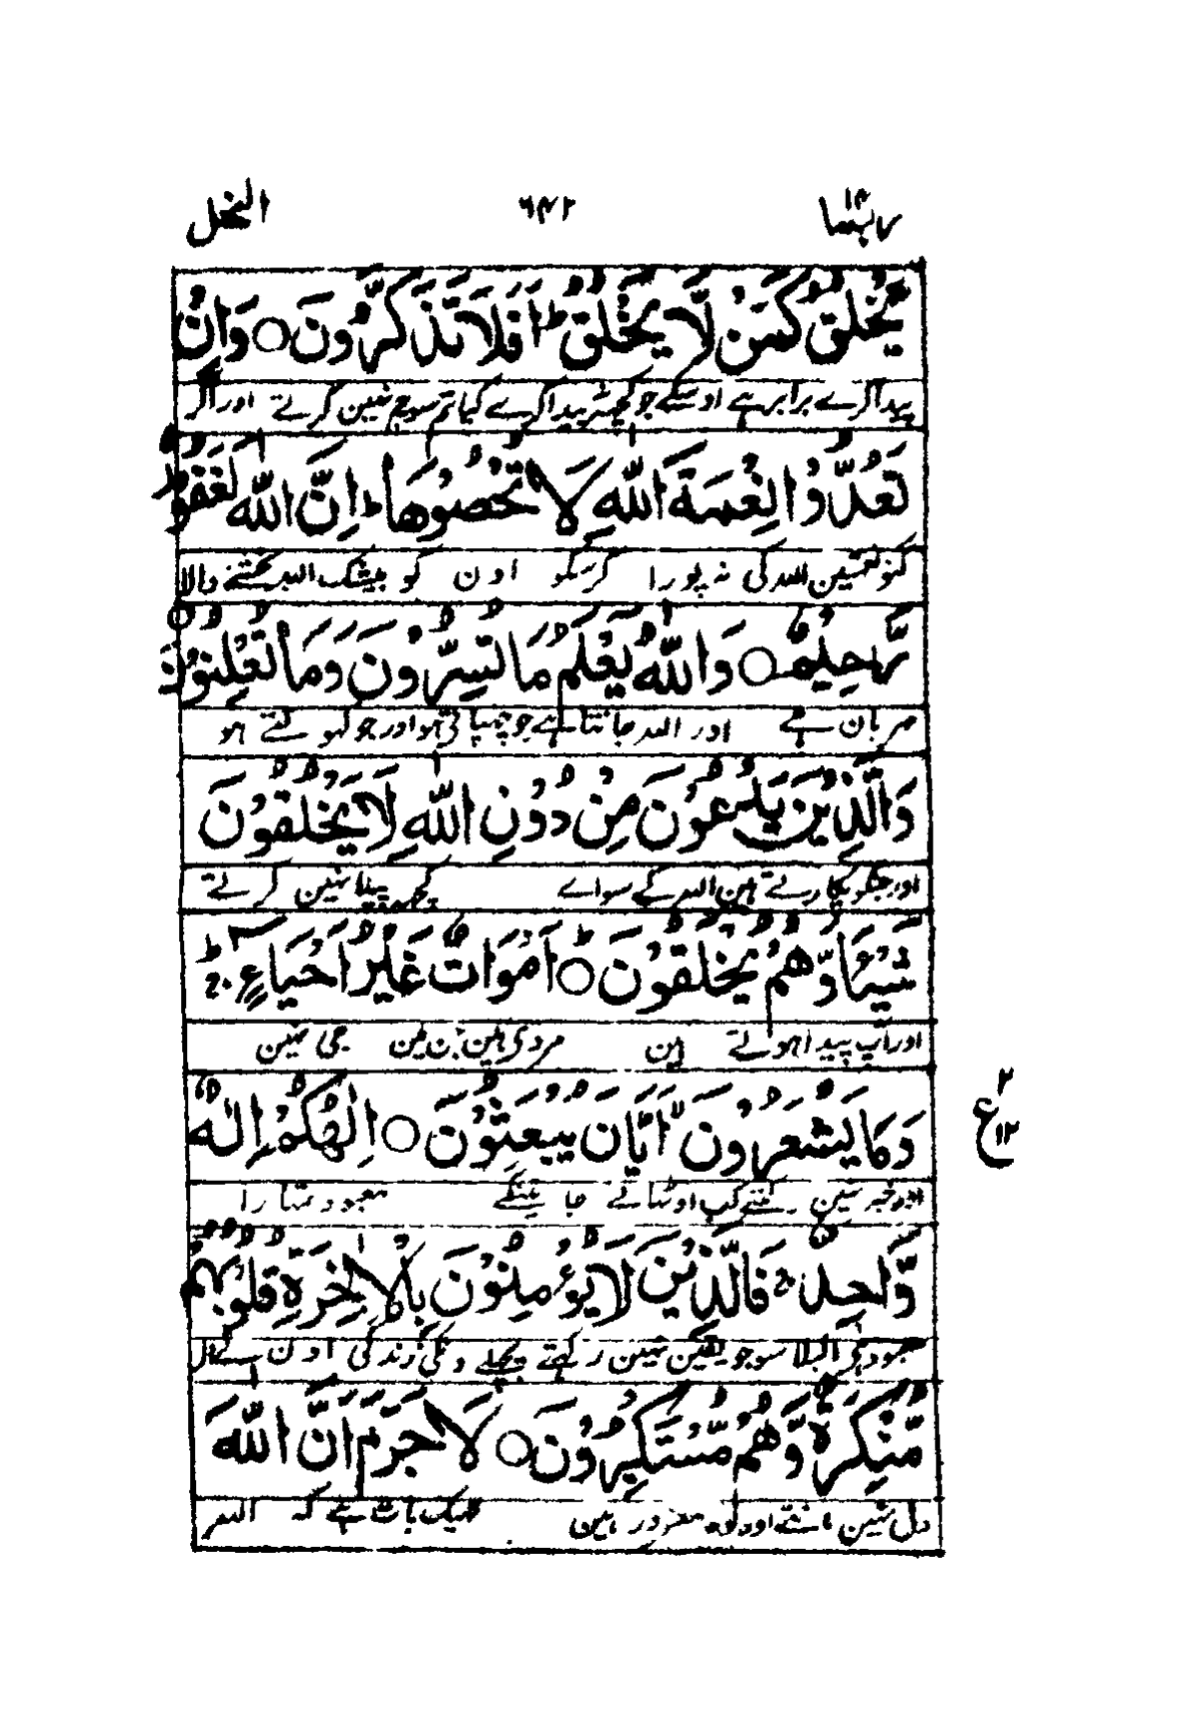 ربما ١٤ ٦٤٢ النحل
يَّخْلُقُ كَمَنْ لَّا يَخْلُقُ ؕ اَفَلَا تَذَكَّرُوْنَ ○ وَاِنْ
پیدا کرے برابر ہے اوسکے جو کچھ نہ پیدا کرے کیا تم سوچ نہین کرتے اور اگر
تَعُدُّوْا نِعْمَةَ اللّٰهِ لَا تُحْصُوْهَا ؕ اِنَّ اللّٰهَ لَغَفُوْرٌ
گنو نعمتین اللہ کی نہ پورا کرسکو اون کو بیشک اللہ بخشنے والا
رَّحِيْمٌ ○ وَاللّٰهُ يَعْلَمُ مَا تُسِرُّوْنَ وَمَا تُعْلِنُوْنَ ○
مہربان ہے اور اللہ جانتا ہے جو چھپاتے ہو اور جو کھولتے ہو
وَالَّذِيْنَ يَدْعُوْنَ مِنْ دُوْنِ اللّٰهِ لَا يَخْلُقُوْنَ
اور جنکو پکارتے ہین اللہ کے سواے کچھ پیدا نہین کرتے
شَيْئًا وَّهُمْ يُخْلَقُوْنَ ○ ؕ اَمْوَاتٌ غَيْرُ اَحْيَآءٍ ۚ ؕ
اور آپ پیدا ہوتے ہین مردی ہین جن مین جی نہین
وَمَا يَشْعُرُوْنَ ۙ اَيَّانَ يُبْعَثُوْنَ ○ اِلٰهُكُمْ اِلٰهٌ
٢ ع ١٢
اور خبر نہین رکھتے کب اوٹھائے جاینگے معبود تمہارا
وَّاحِدٌ ۚ فَالَّذِيْنَ لَا يُؤْمِنُوْنَ بِالْاٰخِرَةِ قُلُوْبُهُمْ
معبود ہے اکیلا سو جو یقین نہین رکھتے پچھلے دنکی زندگی اون کے دل
مُّنْكِرَةٌ وَّهُمْ مُّسْتَكْبِرُوْنَ ○ لَا جَرَمَ اَنَّ اللّٰهَ
دل نہین مانتے اور وہ مغرور ہین ٹھیک بات ہے کہ اللہ